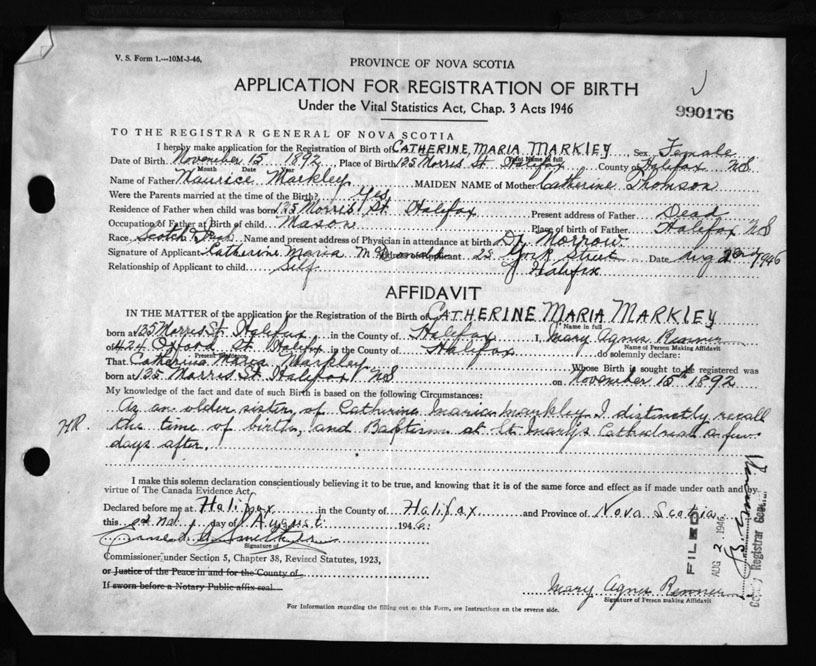 V. S. Form 1.—10M-3-46.
PROVINCE OF NOVA SCOTIA
APPLICATION FOR REGISTRATION OF BIRTH
Under the Vital Statistics Act, Chap. 3 Acts 1946
990176
TO THE REGISTRAR GENERAL OF NOVA SCOTIA
I hereby make application for the Registration of Birth of CATHERINE MARIA MARKLEY, Sex Female
Print Name in full
Date of Birth November 15 1892, Place of Birth 125 Morris St Halifax County of Halifax NS
Month Date Year
Name of Father Maurice Markley MAIDEN NAME of Mother Catherine Thomson
Were the Parents married at the time of the Birth? Yes
Residence of Father when child was born 125 Morris St Halifax Present address of Father Dead
Occupation of Father at Birth of child Mason Place of birth of Father Halifax NS
Race Scotch & Name and present address of Physician in attendance at birth Dr Morrow
Signature of Applicant Catherine Maria McDonald Address of Applicant 25 York Street Date Aug 2nd 1946
Relationship of Applicant to child Self Halifax
AFFIDAVIT
IN THE MATTER of the application for the Registration of the Birth of CATHERINE MARIA MARKLEY
Name in full
born at 125 Morris St. Halifax in the County of Halifax I, Mary Agnes Renner
Name of Person Making Affidavit
of 424 Oxford St Halifax in the County of Halifax do solemnly declare:
Present Residence
That Catherine Maria Markley Whose Birth is sought to be registered was
born at 125 Morris St Halifax NS on November 15th 1892
My knowledge of the fact and date of such Birth is based on the following Circumstances:
As an older sister of Catherine Maria Markley I distinctly recall
HR. the time of birth, and Baptism at St. Mary's Cathedral a few
days after.
I make this solemn declaration conscientiously believing it to be true, and knowing that it is of the same force and effect as if made under oath and by
virtue of The Canada Evidence Act.
Declared before me at Halifax in the County of Halifax and Province of Nova Scotia
this 2nd day of August 1946:
Signature of
Commissioner, under Section 5, Chapter 38, Revised Statutes, 1923,
or Justice of the Peace in and for the County of
If sworn before a Notary Public affix seal
Mary Agnes Renner
Signature of Person making Affidavit
For Information regarding the filling out of this Form, see Instructions on the reverse side.
FILED
AUG 2 1946
Registrar General